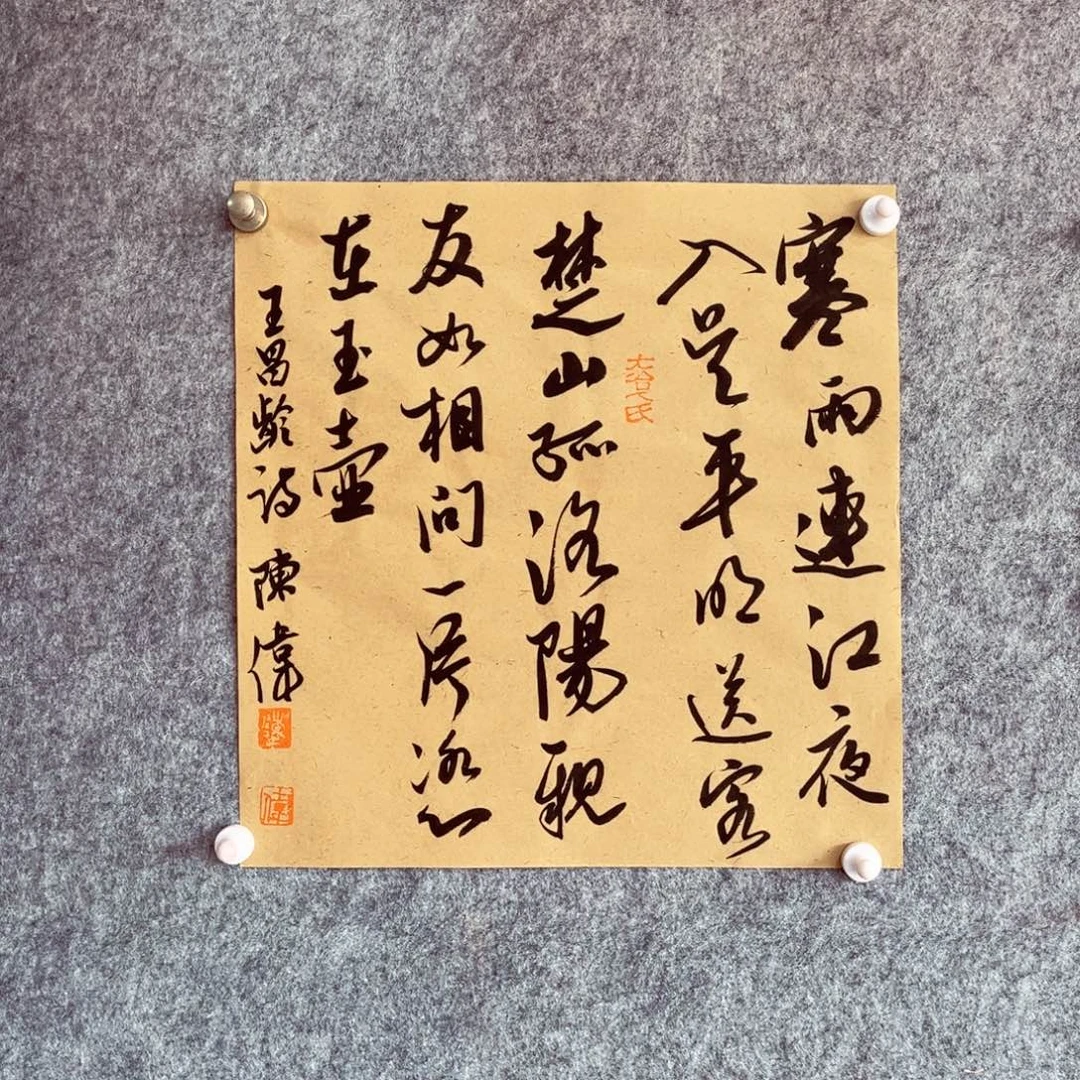 寒雨連江夜
入吳平明送客
楚山孤洛陽親
友如相問一片冰心
在玉壺
王昌齡詩 陳偉